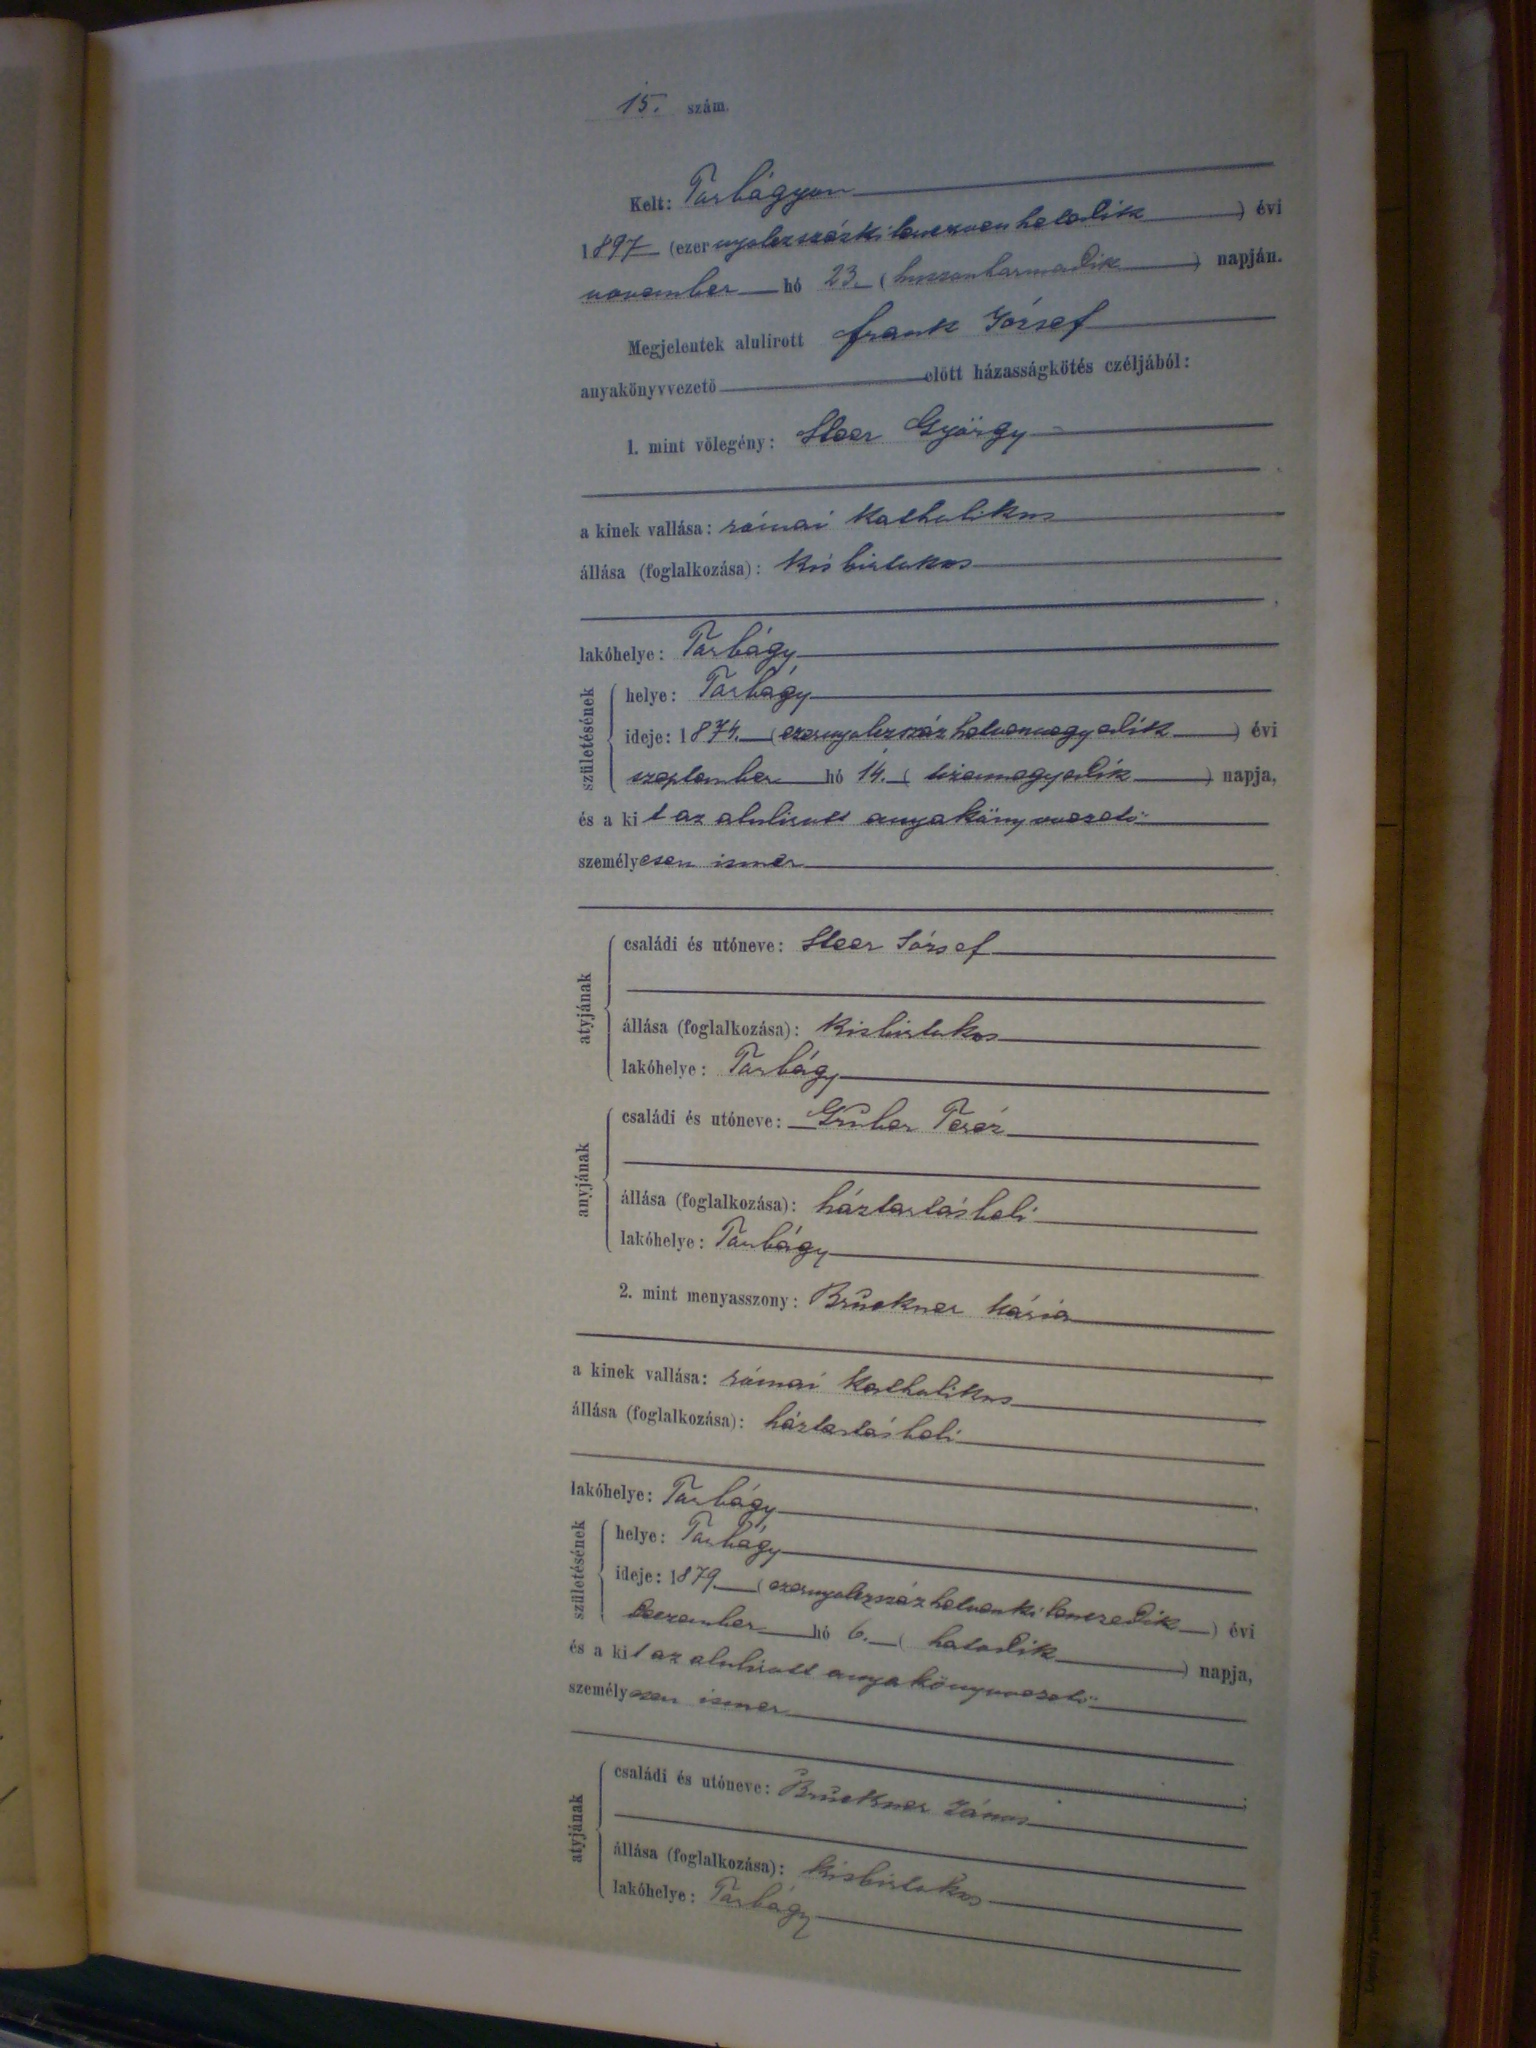 15. szám.
Kelt: Torbágyon
1897 (ezernyolczszázkilenczvenhetedik) évi
november hó 23. (huszonharmadik) napján.
Megjelentek alulirott Frank József
anyakönyvvezető előtt házasságkötés czéljából:
1. mint vőlegény: Steer György
a kinek vallása: római katholikus
állása (foglalkozása): kisbirtokos
lakóhelye: Torbágy
születésének
helye: Torbágy
ideje: 1874. (ezernyolczszázhetvennegyedik) évi
szeptember hó 14. (tizennegyedik) napja,
és a kit az alulirott anyakönyvvezető
személyesen ismer
atyjának
családi és utóneve: Steer József
állása (foglalkozása): kisbirtokos
lakóhelye: Torbágy
anyjának
családi és utóneve: Gruber Teréz
állása (foglalkozása): háztartásbeli
lakóhelye: Torbágy
2. mint menyasszony: Brückner Mária
a kinek vallása: római katholikus
állása (foglalkozása): háztartásbeli
lakóhelye: Torbágy
születésének
helye: Torbágy
ideje: 1879 (ezernyolczszázhetvenkilenczedik) évi
deczember hó 6. (hatodik) napja,
és a kit az alulirott anyakönyvvezető
személyesen ismer
atyjának
családi és utóneve: Brückner János
állása (foglalkozása): kisbirtokos
lakóhelye: Torbágy